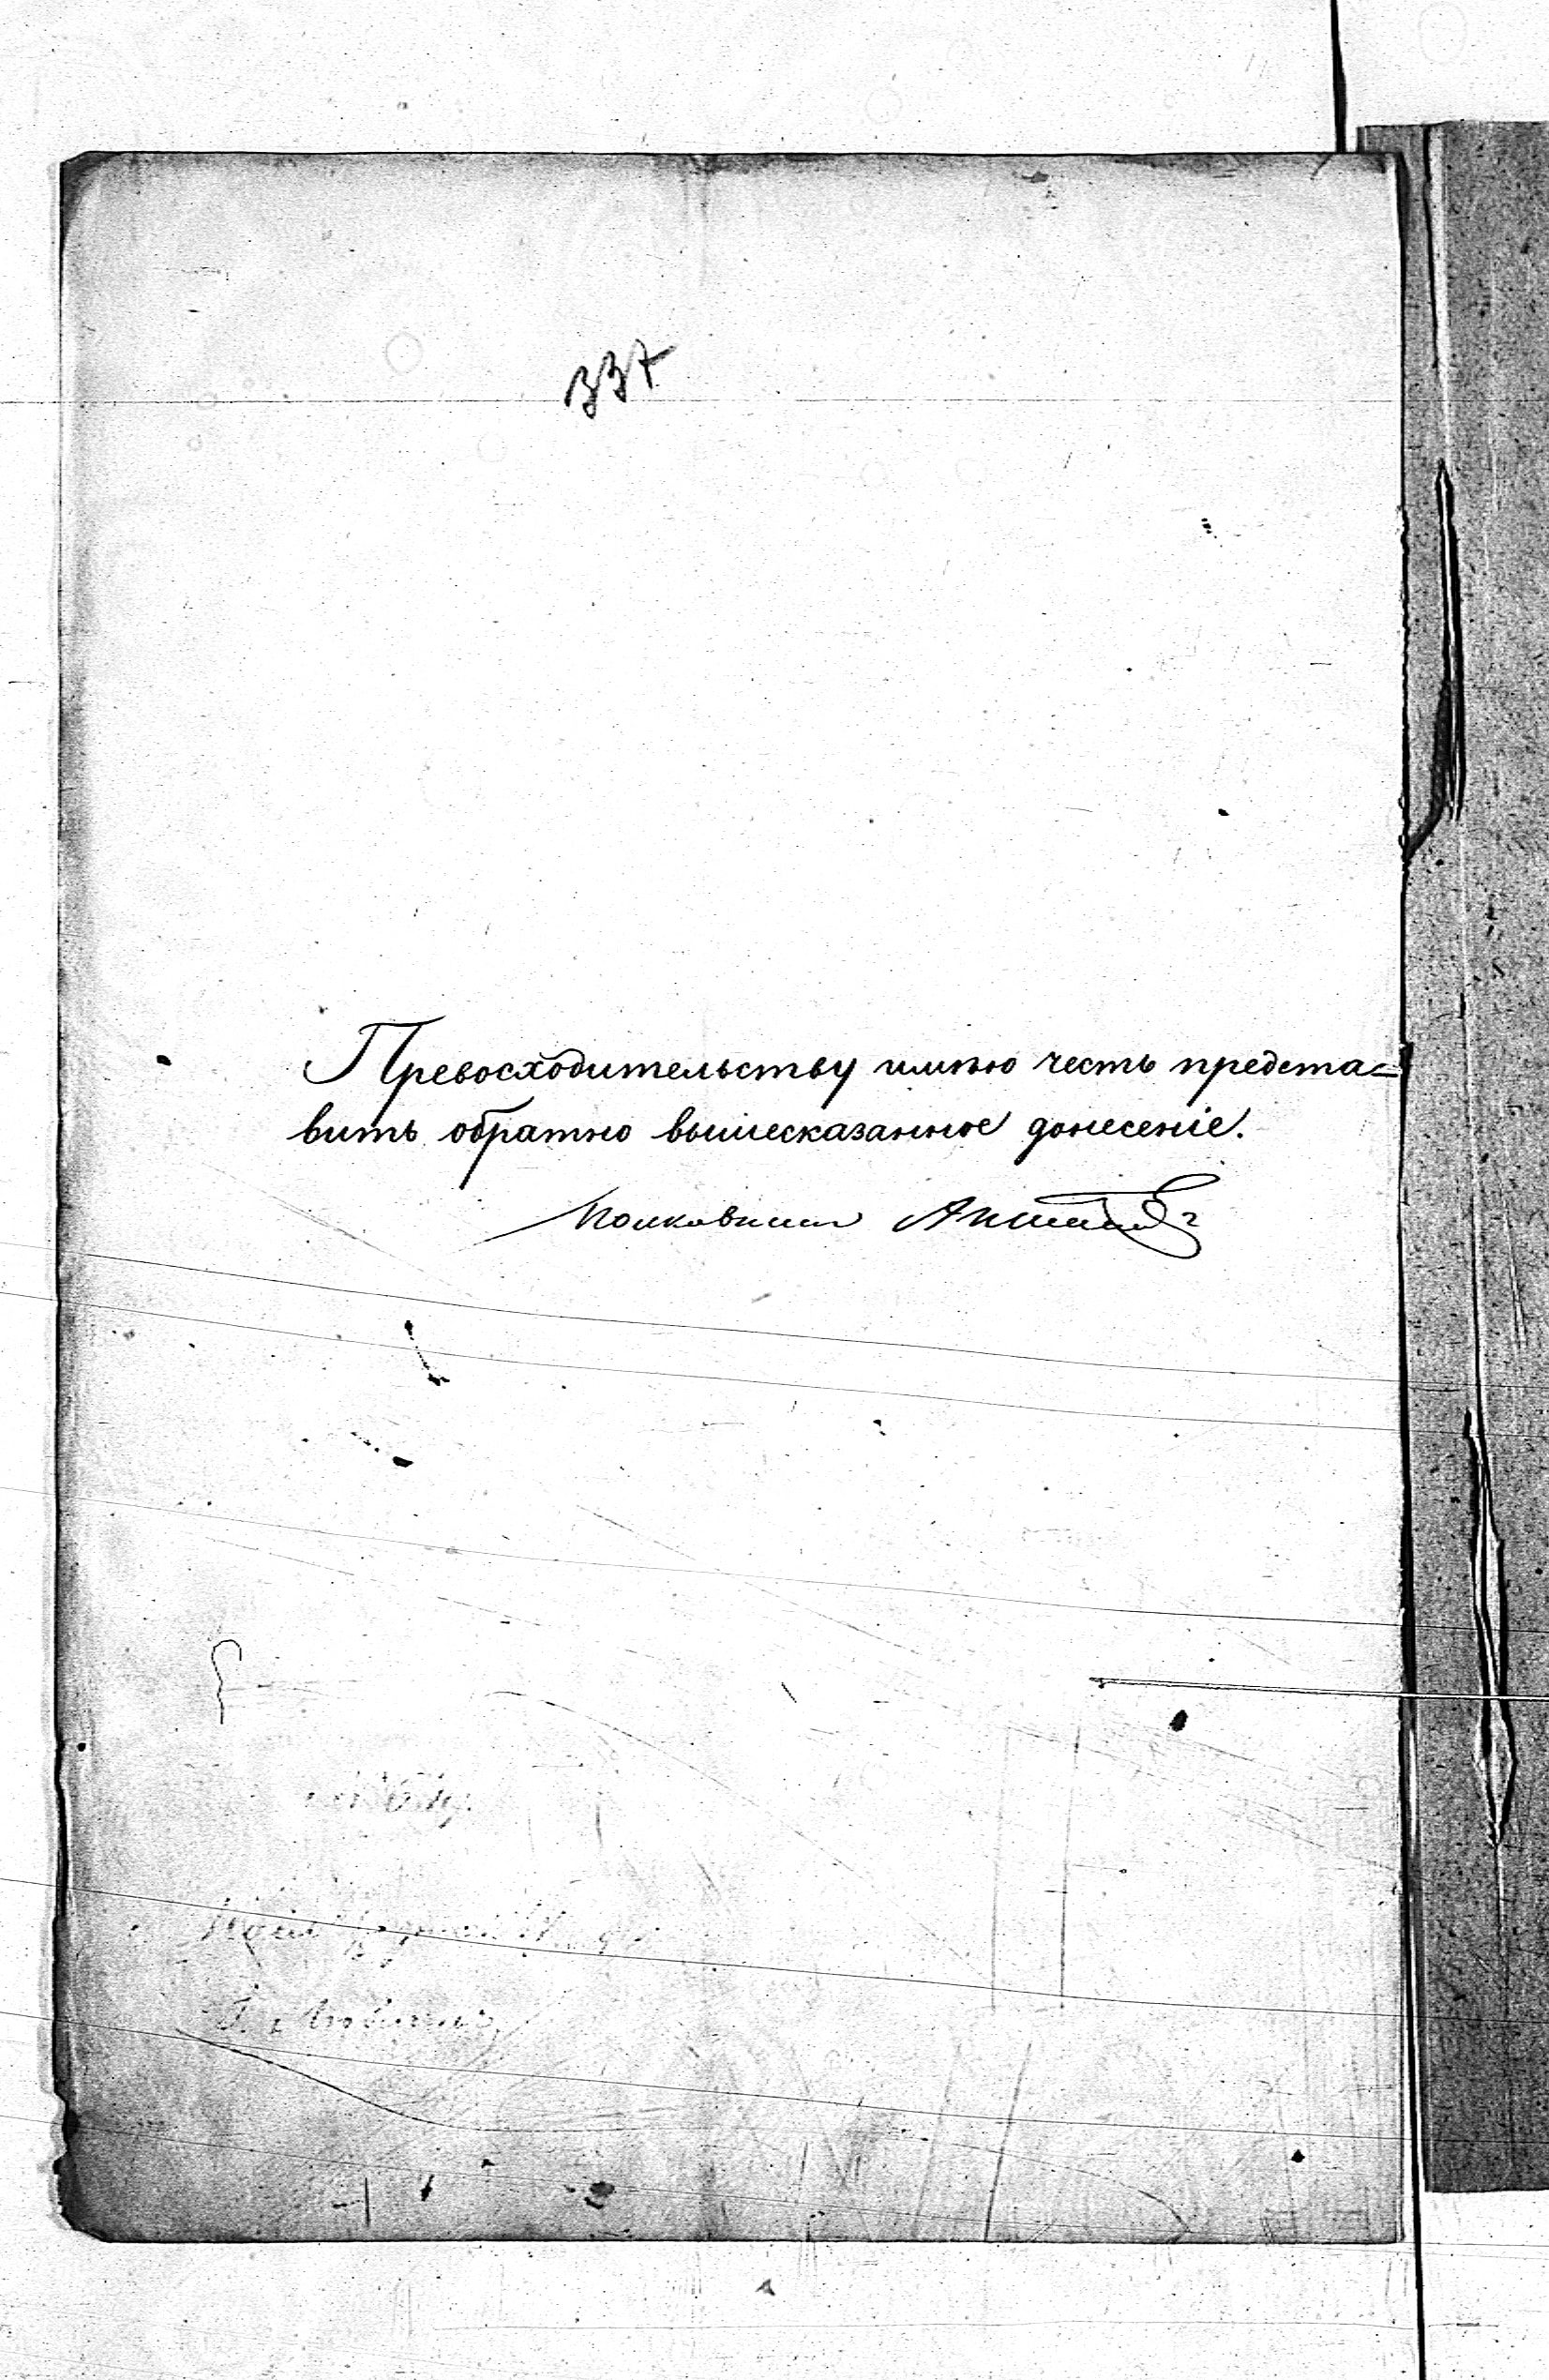 337
Превосходительству имѣю честь предста=
вить обратно вышесказанное донесеніе.
Полковникъ